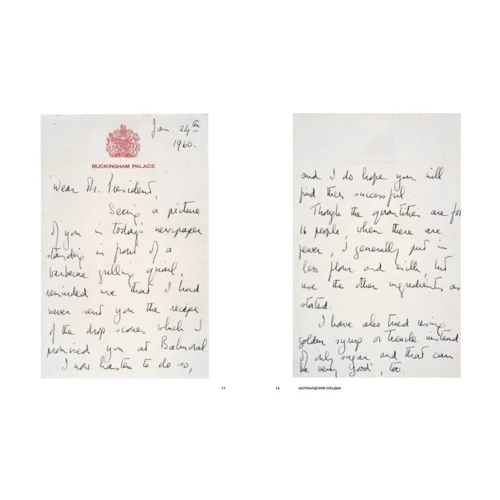 Jan. 24th
1960.
BUCKINGHAM PALACE
Dear Mr. President,
Seeing a picture
of you in today's newspaper
standing in front of a
barbecue grilling quail,
reminded me that I had
never sent you the recipe
of the drop scones which I
promised you at Balmoral.
I now hasten to do so,
13
and I do hope you will
find them successful.
Though the quantities are for
16 people, when there are
fewer, I generally put in
less flour and milk, but
use the other ingredients as
stated.
I have also tried using
golden syrup or treacle instead
of only sugar and that can
be very good, too.
14
ШОТЛАНДСКИЕ ОЛАДЬИ